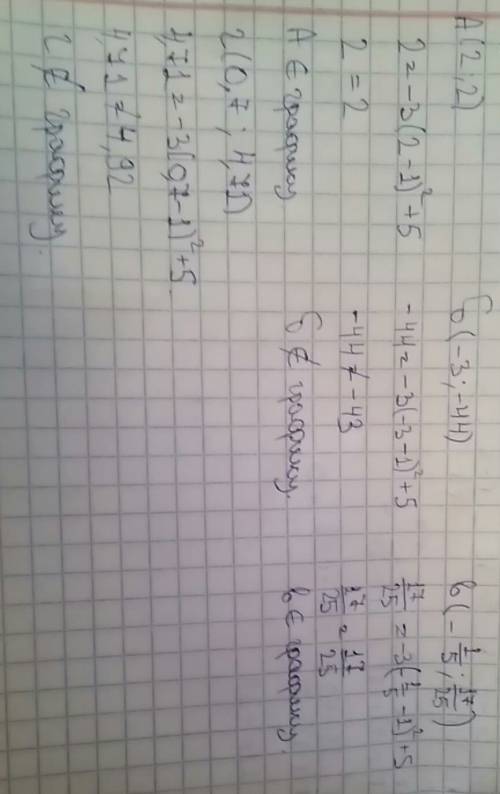 A(2;2)
2=-3(2-1)²+5
2=2
A ∈ графику
Б(-3;-44)
-44=-3(-3-1)²+5
-44≠-43
Б ∉ графику.
в(-1/5;17/25)
17/25=-3(-1/5-1)²+5
17/25=17/25
в ∈ графику.
г(0,7;4,71)
4,71=-3(0,7-1)²+5
4,71≠4,92
г ∉ графику.